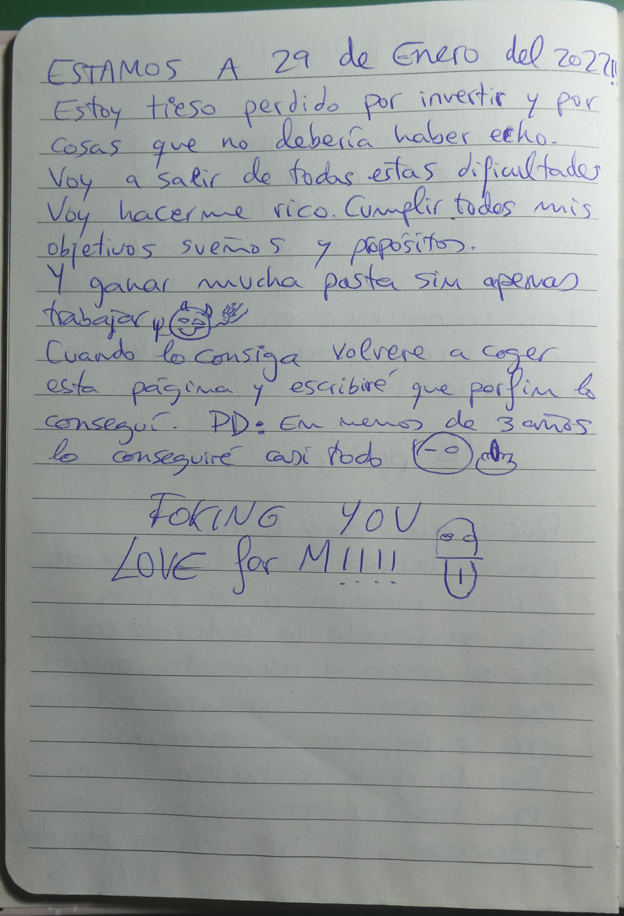 ESTAMOS A 29 de Enero del 2022!!
Estoy tieso perdido por invertir y por
cosas que no debería haber echo.
Voy a salir de todas estas dificultades
Voy hacerme rico. Cumplir todos mis
objetivos sueños y propósitos.
Y ganar mucha pasta sin apenas
trabajar
Cuando lo consiga volvere a coger
esta página y escribiré que porfin lo
conseguí. PD: En menos de 3 años
lo conseguiré casi todo
FOKING YOU
LOVE for M!!!!!